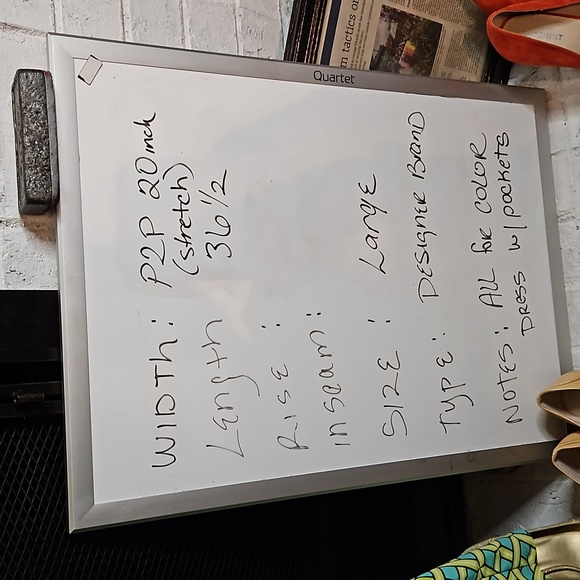 Quartet
WIDTH: P2P 20 inch
(stretch)
Length 36 1/2
Rise:
inseam:
SIZE: Large
Type: DESIGNER BRAND
NOTES: ALL for COLOR
DRESS w/ pockets
m tactics or